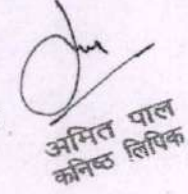 अमित पाल
कनिष्ठ लिपिक